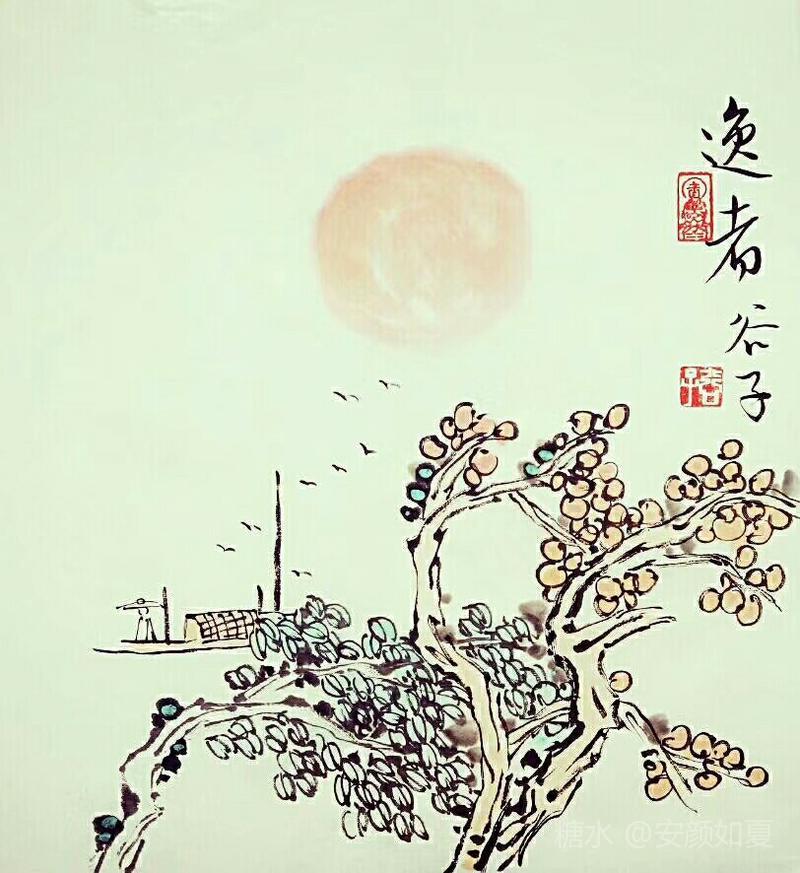 逸者
谷子
糖水 @安颜如夏